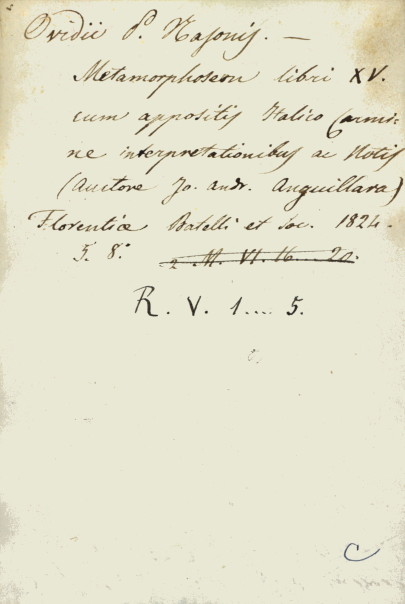 Ovidii P. Nasonis. —
Metamorphoseon libri XV.
cum appositis Italico Carmi-
ne interpretationibus ac Notis
(Auctore Jo. Andr. Anguillara)
Florentiae Batelli et Soc. 1824.
5. 8.° 2. M. VI. 16....20.
R. V. 1.... 5.
C